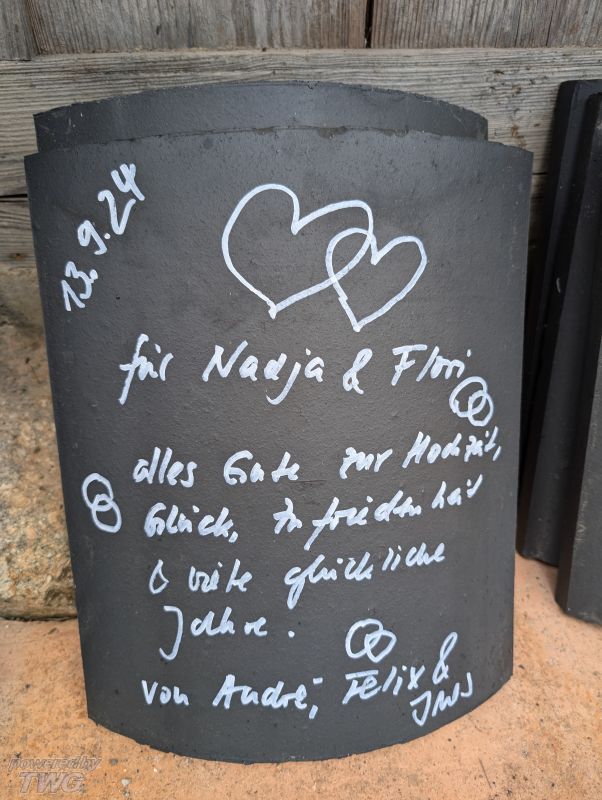 13.9.24
für Nadja & Flori
alles Gute zur Hochzeit,
Glück, Zufriedenheit
& viele glückliche
Jahre.
von André, Felix &
powered by
TWG